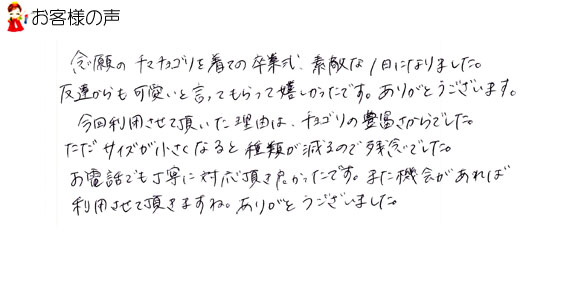 お客様の声
念願のチマチョゴリを着ての卒業式、素敵な1日になりました。
友達からも可愛いと言ってもらって嬉しかったです。ありがとうございます。
今回利用させて頂いた理由は、チョゴリの豊富さからでした。
ただサイズが小さくなると種類が減るので残念でした。
お電話でも丁寧に対応頂き良かったです。また機会があれば
利用させて頂きますね。ありがとうございました。